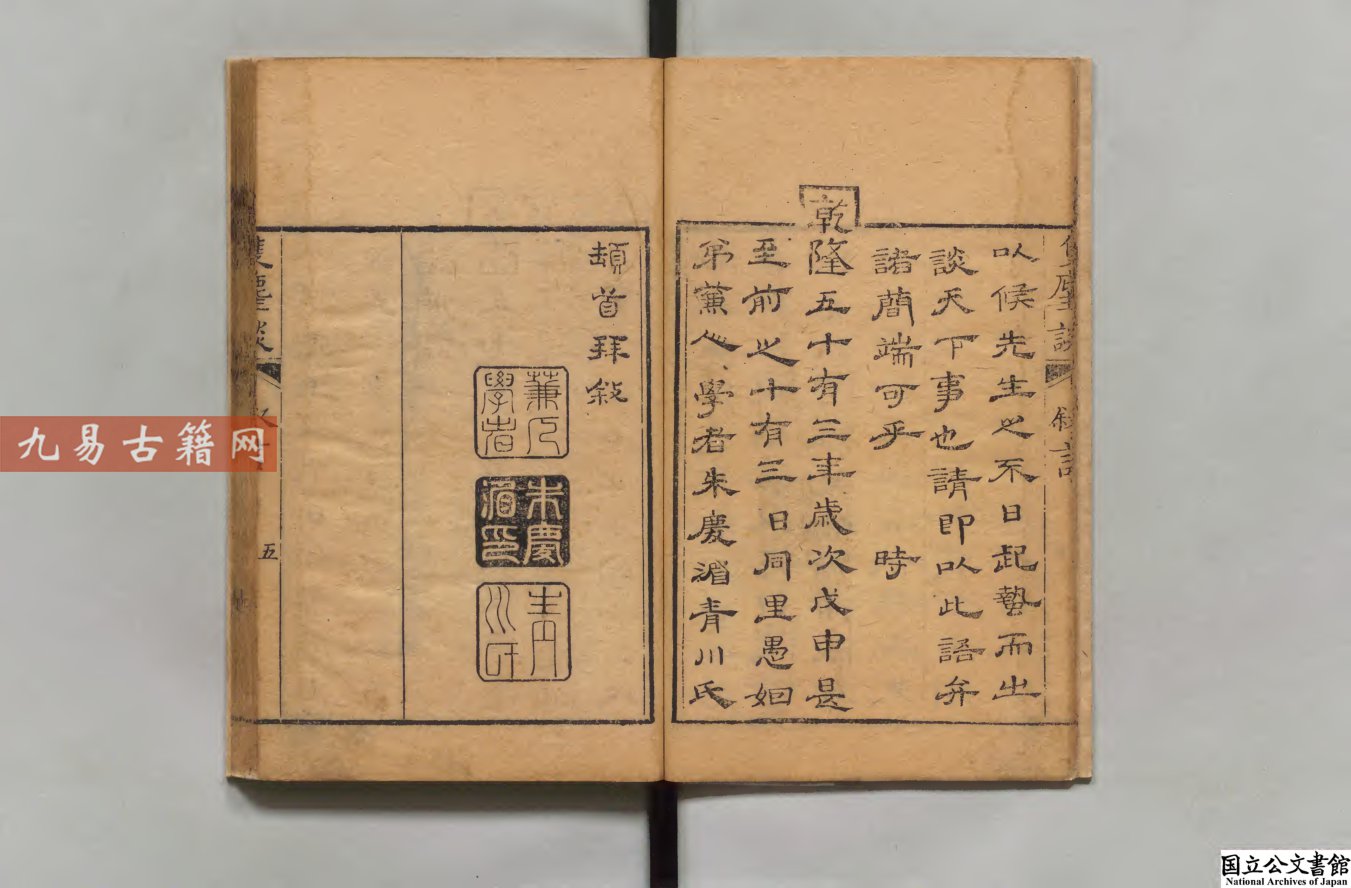 雙塵談 敘
以候先生之不日起藝而出
談天下事也請即以此語弁
諸簡端可乎 時
乾隆五十有三年歲次戊申長
至前之十有三日同里愚姻
弟薰心學者朱慶湄青川氏
頓首拜敘
薰心學者
朱慶湄印
青川氏
雙塵談
五
九易古籍网
国立公文書館
National Archives of Japan